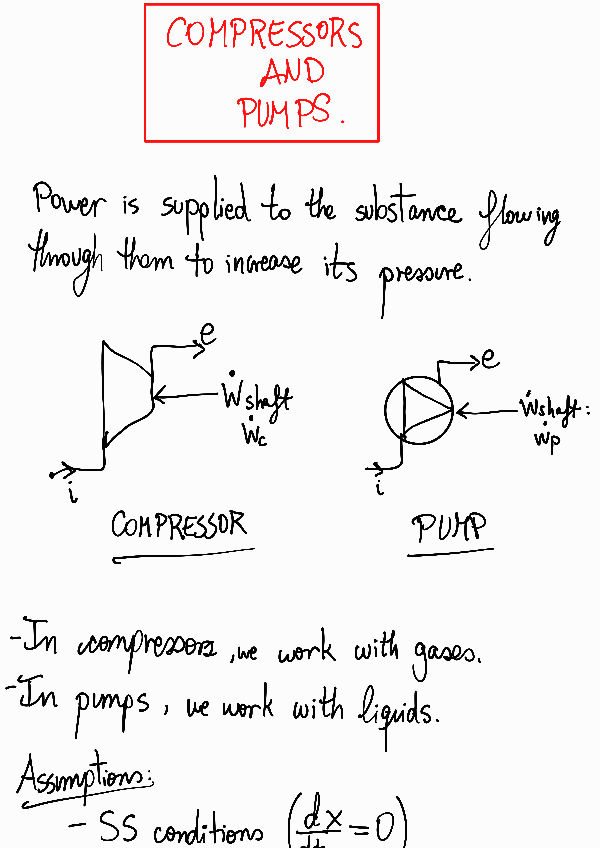 COMPRESSORS
AND
PUMPS.
Power is supplied to the substance flowing
through them to increase its pressure.
e
Ẇshaft
Ẇc
i
COMPRESSOR
e
Ẇshaft:
Ẇp
i
PUMP
-In compressors, we work with gases.
-In pumps, we work with liquids.
Assumptions:
- SS conditions (dx/dt = 0)